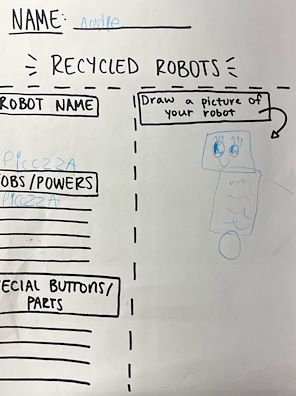 NAME: Andre
RECYCLED ROBOTS
ROBOT NAME
PICCZZA
OBS/POWERS
PICZZA
ECIAL BUTTONS/
PARTS
Draw a picture of
your robot